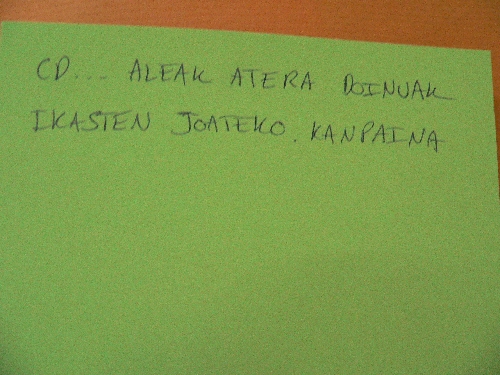 CD... ALEAK ATERA DOINUAK
IKASTEN JOATEKO. KANPAINA